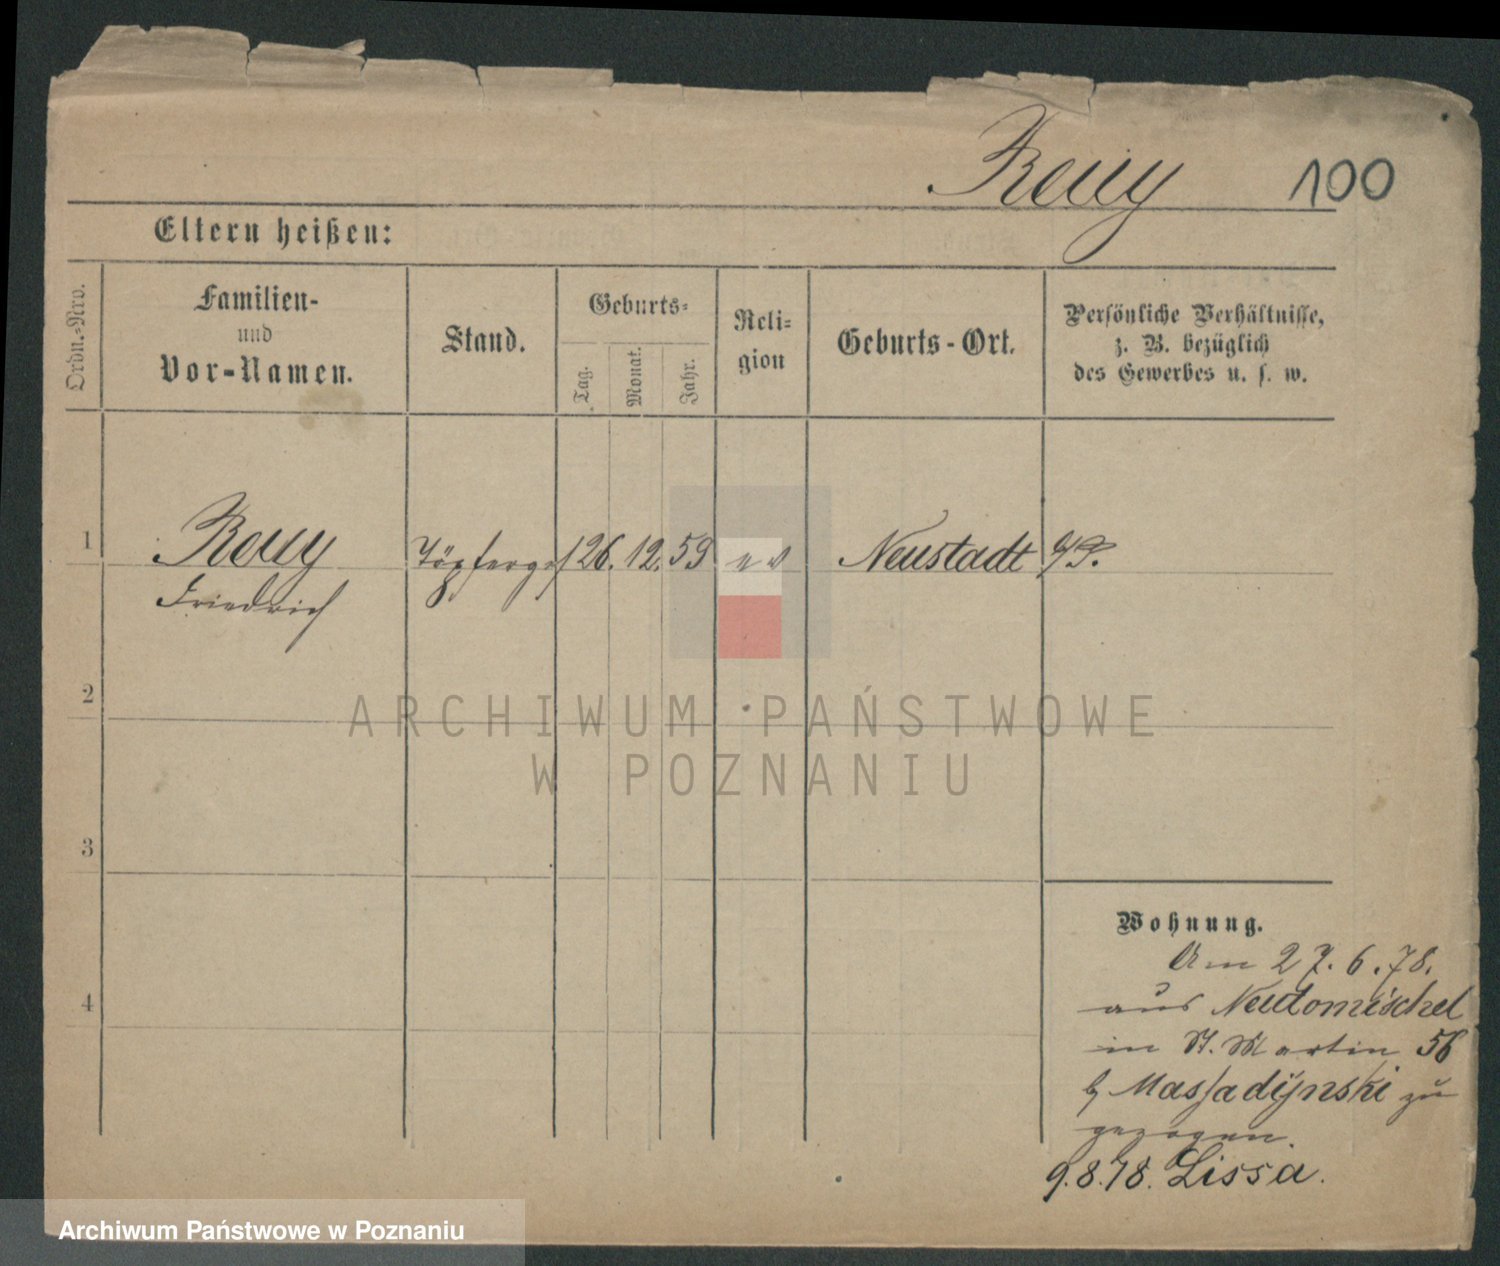 Reuy 100
Eltern heißen:
Ordn.-Nro.
Familien-
und
Vor-Namen.
Stand.
Geburts-
Tag.
Monat.
Jahr.
Reli-
gion
Geburts-Ort.
Persönliche Verhältnisse,
z. B. bezüglich
des Gewerbes u. s. w.
1 Reuy Töpferges 26. 12. 59 ev Neustadt b/P.
Friedrich
2
ARCHIWUM PAŃSTWOWE
W POZNANIU
3
Wohnung.
Am 27.6.78.
aus Neutomischel
in St. Martin 56
b/ Massadynski zu
gezogen.
9.8.78. Lissa.
4
Archiwum Państwowe w Poznaniu